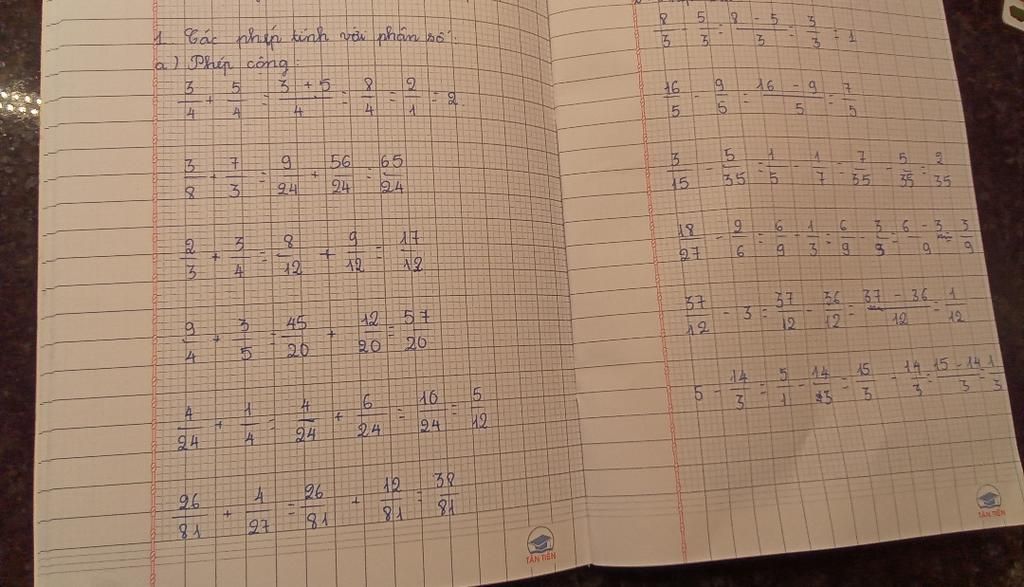 1. Các phép tính với phân số.
a) Phép cộng:
3/4 + 5/4 = 3 + 5/4 = 8/4 = 2/1 = 2
3/8 + 7/3 = 9/24 + 56/24 = 65/24
2/3 + 3/4 = 8/12 + 9/12 = 17/12
9/4 + 3/5 = 45/20 + 12/20 = 57/20
4/24 + 1/4 = 4/24 + 6/24 = 10/24 = 5/12
26/81 + 4/27 = 26/81 + 12/81 = 38/81
TÂN TIẾN
8/3 - 5/3 = 8 - 5/3 = 3/3 = 1
16/5 - 9/5 = 16 - 9/5 = 7/5
3/15 - 5/35 = 1/5 - 1/7 = 7/35 - 5/35 = 2/35
18/27 - 2/6 = 6/9 - 1/3 = 6/9 - 3/9 = 6 - 3/9 = 3/9
37/12 - 3 = 37/12 - 36/12 = 37 - 36/12 = 1/12
5 - 14/3 = 5/1 - 14/3 = 15/3 - 14/3 = 15 - 14/3 = 1/3
TÂN TIẾN